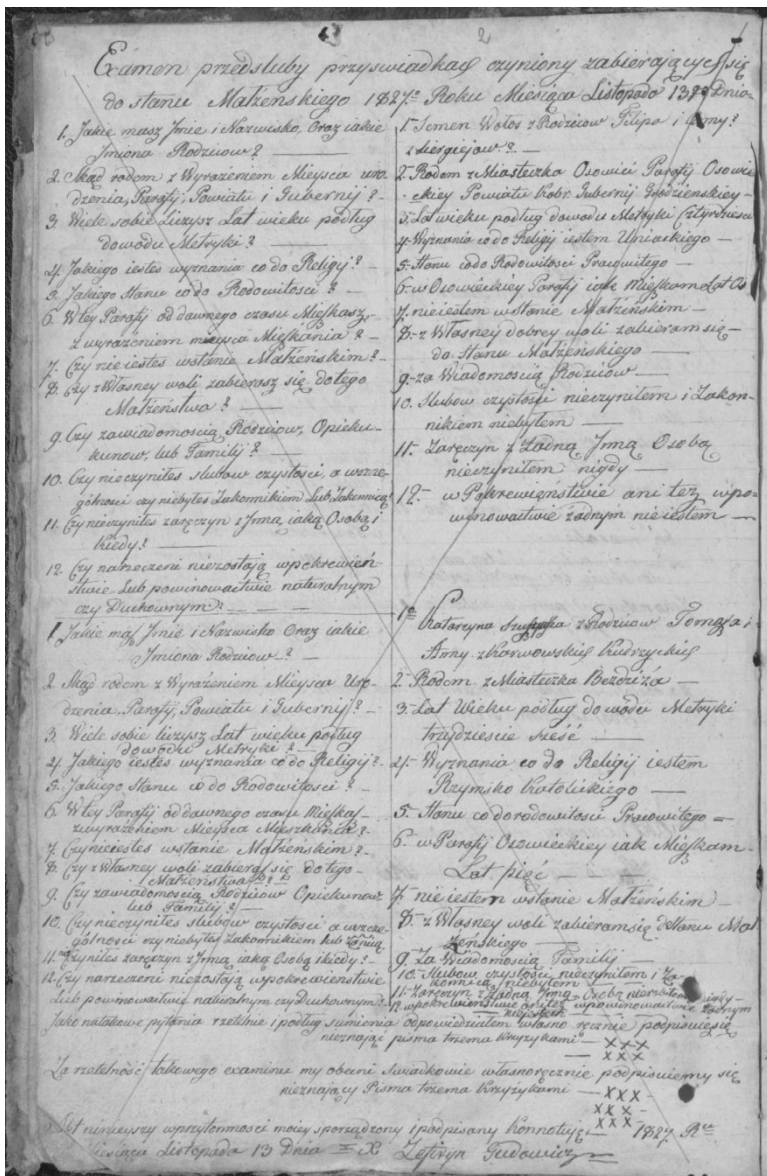 2
Examen przedslubny przyswiadkach czyniony zabierających się
do stanu Małżenskiego 1827º Roku Miesiąca Listopada 13 Dnia
1. Jakie masz Jmie i Nazwisko, Oraz iakie
Jmiona Rodzicow? —
2. Skąd rodem z Wyrażeniem Mieysca uro-
dzenia, Parafij, Powiatu i Gubernij? —
3. Wiele sobie Liczysz Lat wieku podług
dowodu Metryki? —
4. Jakiego iestes wyznania co do Religij? —
5. Jakiego Stanu co do Rodowitosci? —
6. W tey Parafij od dawnego czasu Mięszkasz,
z wyrażeniem mieysca Mięszkania? —
7. Czy nie iestes wstanie Małżeńskim? —
8. Czy z Własney woli zabierasz się do tego
Małżeństwa? —
9. Czy zawiadomoscią Rodzicow, Opieku-
kunow, lub Familij? —
10. Czy nieczyniles slubow czystosci, a wszcze-
gólnosci czy niebyłes Zakonnikiem Lub Zakonnicą?
11. Czy nieczyniles zaręczyn z Jnną iaką Osobą i
kiedy? —
12. Czy narzeczeni niezostają wpokrewień-
stwie Lub powinowactwie naturalnym
czy Duchownym? — — —
1. Semen Wołos z Rodzicow Filipa i Anny?
2. Rodem z Miasteczka Osowiec Parafij Osowie-
ckiey Powiatu Kobr. Gubernij Grodzienskiey —
3. Lat wieku podług dowodu Metryki
4. Wyznania co do Religij iestem Uniackiego —
5. Stanu co do Rodowitosci Pracowitego —
6. w Osowieckiey Parafij iak Mięszkam Lat
7. nie iestem wstanie Małżenskim —
8. z Własney dobrey woli zabieram się —
do Stanu Małżenskiego —
9. za Wiadomoscią Rodzicow —
10. Slubow czystosci nieczyniłem i Zakon-
nikiem niebyłem —
11. Zaręczyn z Żadną Jnną Osobą
nieczyniłem nigdy —
12. w Pokrewięństwie ani też wpo-
winowactwie żadnym nie iestem —
1. Jakie masz Jmie i Nazwisko Oraz iakie
Jmiona Rodzicow? —
2. Skąd rodem z Wyrażeniem Mieysca Uro-
dzenia, Parafij, Powiatu i Gubernij? —
3. Wiele sobie liczysz Lat wieku podług
dowodu Metryki? —
4. Jakiego iestes wyznania co do Religij? —
5. Jakiego Stanu co do Rodowitosci? —
6. W tey Parafij od dawnego czasu Mięszkasz
zwyrażeniem Mieysca Mięszkania? —
7. Czy nieiestes wstanie Małżenskim? —
8. Czy z Własney woli zabierasz się do tego —
Małżenstwa? —
9. Czy zawiadomoscią Rodzicow Opiekunow
lub Familij? —
10. Czy nieczyniles slubow czystosci a wszcze-
gólnosci czy niebyłes Zakonnikiem lub
11. zaręczyn z Jnną iaką Osobą i kiedy? —
12. Czy narzeczeni niezostają wpokrewienstwie
Lub powinowactwie naturalnym czy Duchownym? —
1º Katarzyna z Rodzicow Tomasza i
Anny z Karwowskich
2. Rodem z Miasteczka Bezdzieża —
3. Lat Wieku podług dowodu Metryki
trzydziescie sześć —
4. Wyznania co do Religij iestem
Rzymsko Katolickiego —
5. Stanu co dorodowitosci Pracowitego —
6. w Parafij Osowieckiey iak Mięszkam —
Lat pięć — —
7. nie iestem wstanie Małżenskim —
8. z Własney woli zabieram się do Stanu Mał-
żenskiego —
9. Za Wiadomoscią Familij —
10. Slubow czystosci nieczyniłem i Za-
konnicą niebyłem —
11. Zaręczyn z Żadną Jnną Osobą nigdy —
12. wpokrewienstwie powinowactwie żadnym
Jako natakowe pytania rzetelnie i podług sumienia odpowiedziałem własno ręcznie podpisuię się
nieznając pisma trzema Krzyżykami — XXX
— XXX
Za rzetelność takowego examinu my obecni Swiadkowie własnoręcznie podpisuiemy się
nieznający Pisma trzema Krzyżykami — XXX
XXX —
XXX
Akt ninieyszy wprzytomnosci moiey sporządzony i podpisany — 1827 Ru
Miesiąca Listopada 13 Dnia — X Zefiryn Gudowicz